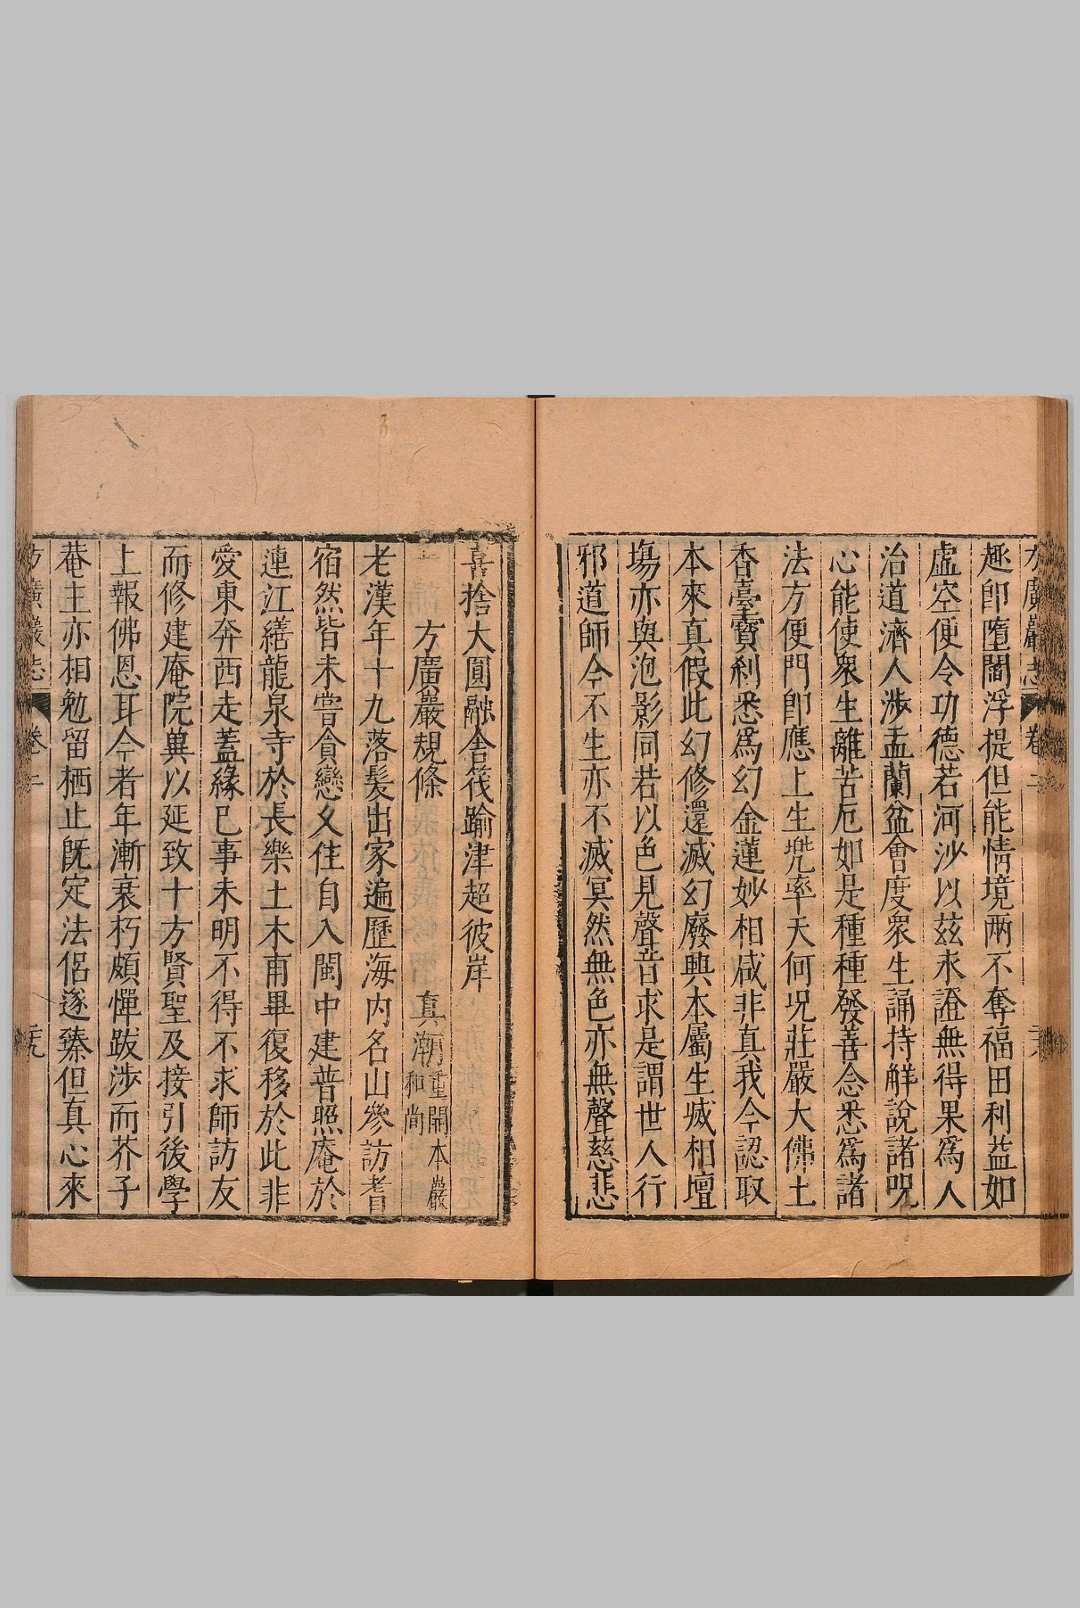 方廣巖志 卷二 二十八
趣即墮閻浮提但能情境兩不奪福田利益如
虛空便令功德若河沙以茲永證無得果爲人
治道濟人涉盂蘭盆會度衆生誦持解說諸呪
心能使衆生離苦厄如是種種發善念悉爲諸
法方便門即應上生兜率天何況莊嚴大佛土
香臺寶刹悉爲幻金蓮妙相咸非真我今認取
本來真假此幻修還滅幻廢興本屬生滅相壇
塲亦與泡影同若以色見聲音求是謂世人行
邪道師今不生亦不滅冥然無色亦無聲慈悲
喜捨大圓融舍筏踰津超彼岸
方廣巖規條 真潮重開本巖和尚
老漢年十九落髮出家遍歷海内名山參訪耆
宿然皆未嘗貪戀久住自入閩中建普照庵於
連江繕龍泉寺於長樂土木甫畢復移於此非
愛東奔西走蓋緣已事未明不得不求師訪友
而修建庵院兼以延致十方賢聖及接引後學
上報佛恩耳今者年漸衰朽頗憚跋涉而芥子
菴主亦相勉留栖止既定法侶遂臻但真心來
方廣巖志 卷二 二十九